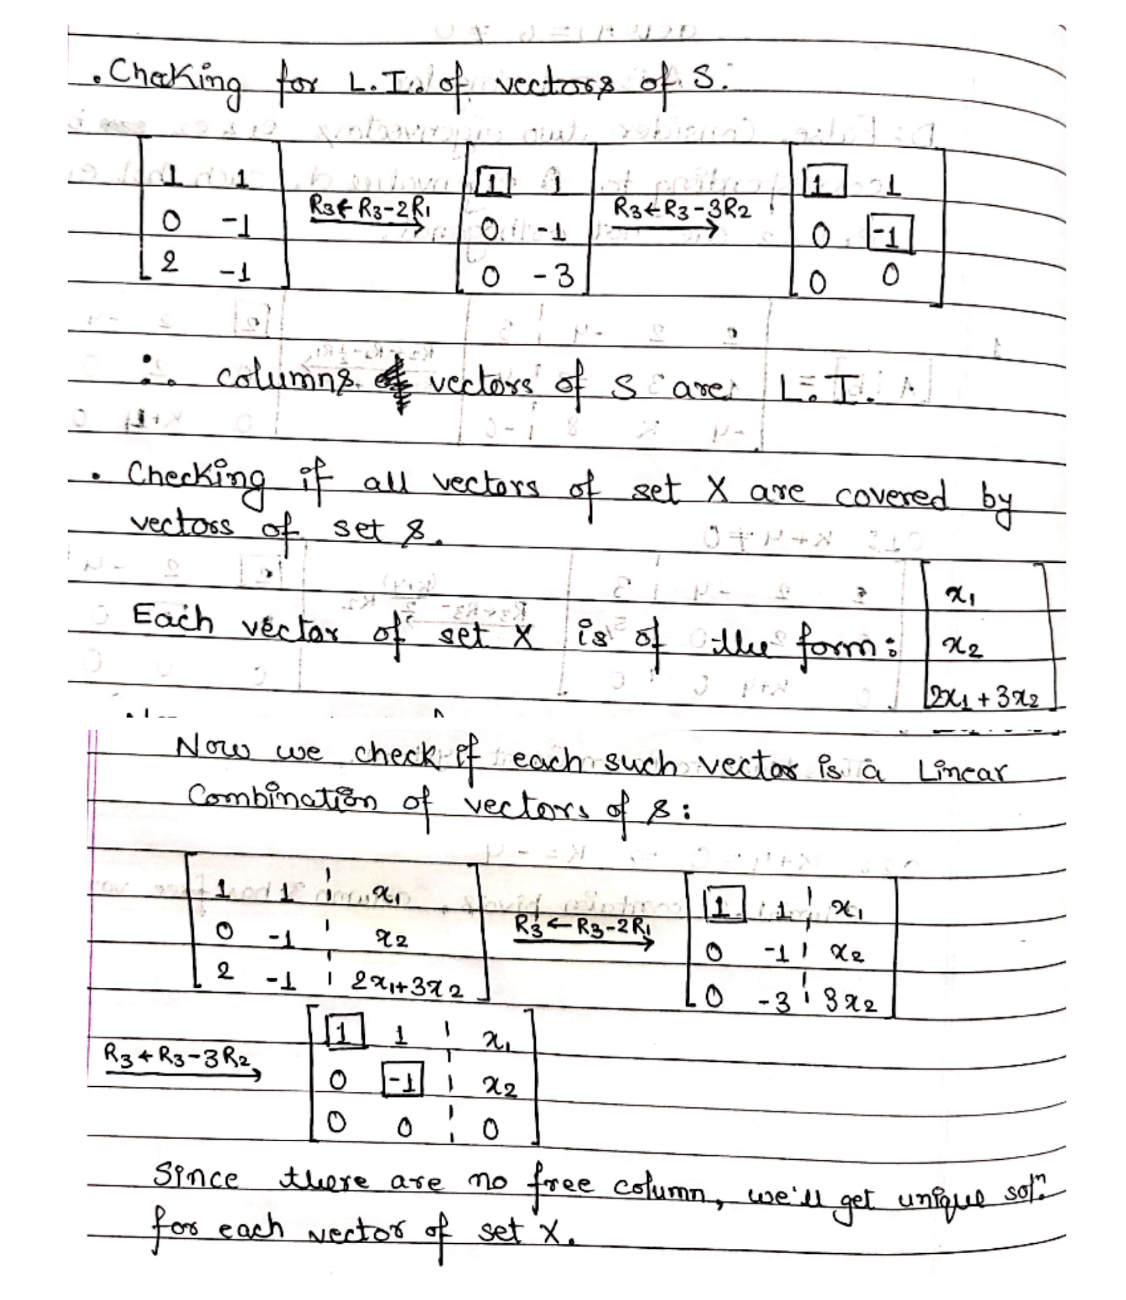 . Checking for L.I. of vectors of S.
[1 1; 0 -1; 2 -1] R3←R3-2R1 → [1 1; 0 -1; 0 -3] R3←R3-3R2 → [1 1; 0 -1; 0 0]
∴ columns vectors of S are L.I.
. Checking if all vectors of set X are covered by
vectors of set S.
Each vector of set X is of the form: [x1; x2; 2x1+3x2]
Now we check if each such vector is a Linear
Combination of vectors of S:
[1 1 ¦ x1; 0 -1 ¦ x2; 2 -1 ¦ 2x1+3x2] R3←R3-2R1 → [1 1 ¦ x1; 0 -1 ¦ x2; 0 -3 ¦ 3x2]
R3←R3-3R2 → [1 1 ¦ x1; 0 -1 ¦ x2; 0 0 ¦ 0]
Since there are no free column, we'll get unique solⁿ.
for each vector of set X.